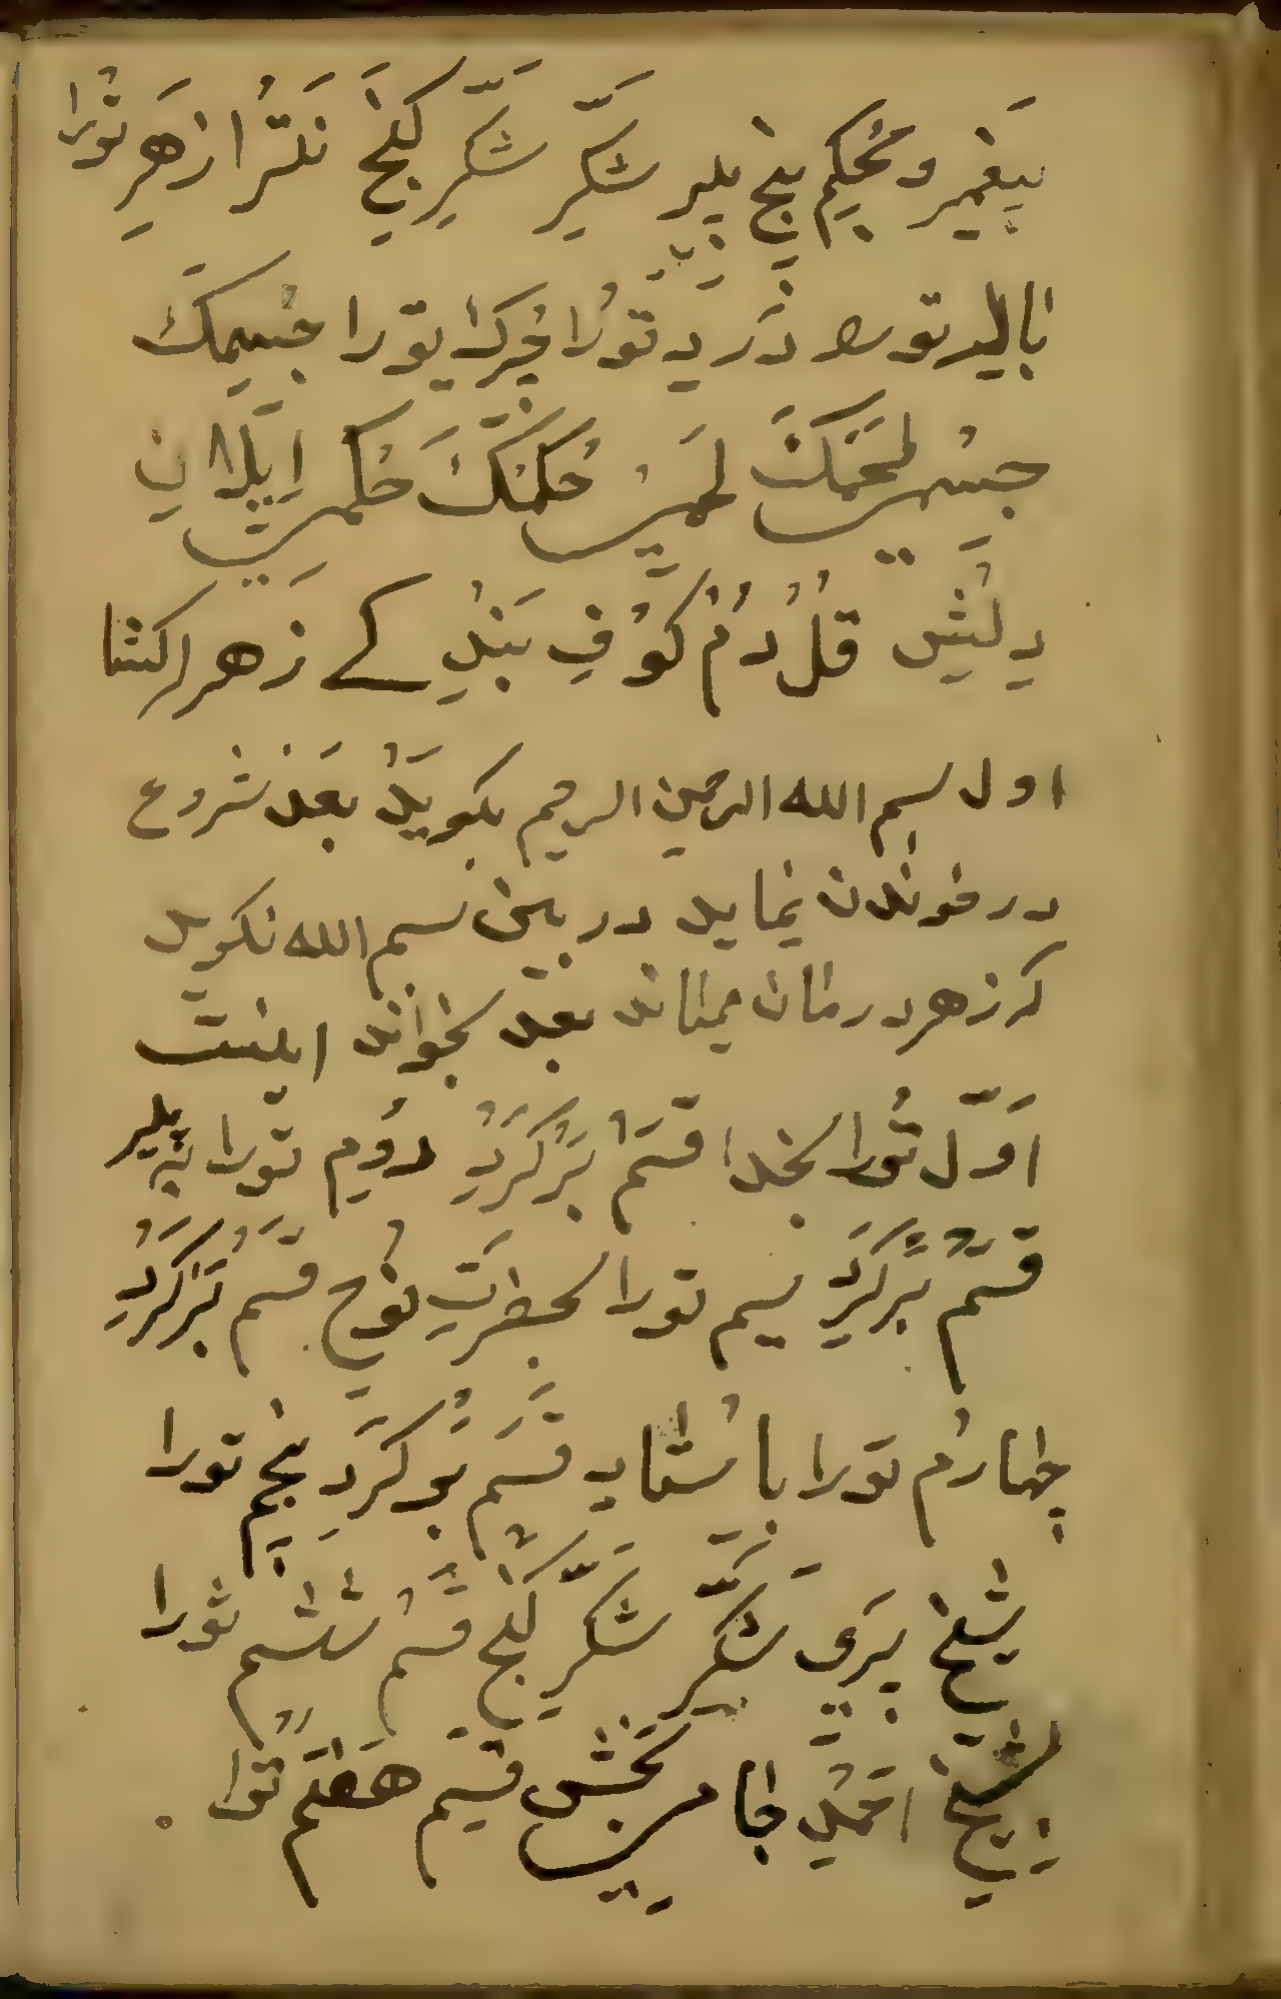 پیغمبر و محکم پنج پیر شکر شکر گنج نتر از هر تورا
بالیر تورا در ید تورا جرک تورا جسمک
جسمی لحمک لحمی حکمک حکمی
قل دم کوف بند کے زهر را کشا
اول بسم الله الرحمن الرحیم بکوید بعد شروع
در خوندن نماید در بین بسم الله نکوید
که زهر در مان میماند بعد بخواند اینست
اول تورا بخدا قسم برکرد دویم تورا به پیر
قسم برکرد سیم تورا بحضرت نوح قسم برکرد
چهارم تورا با ستاب قسم برکرد پنجم تورا
شیخ پری شکر شکر گنج قسم ششم تورا
بشیخ احمد جام بخش قسم هفتم تورا